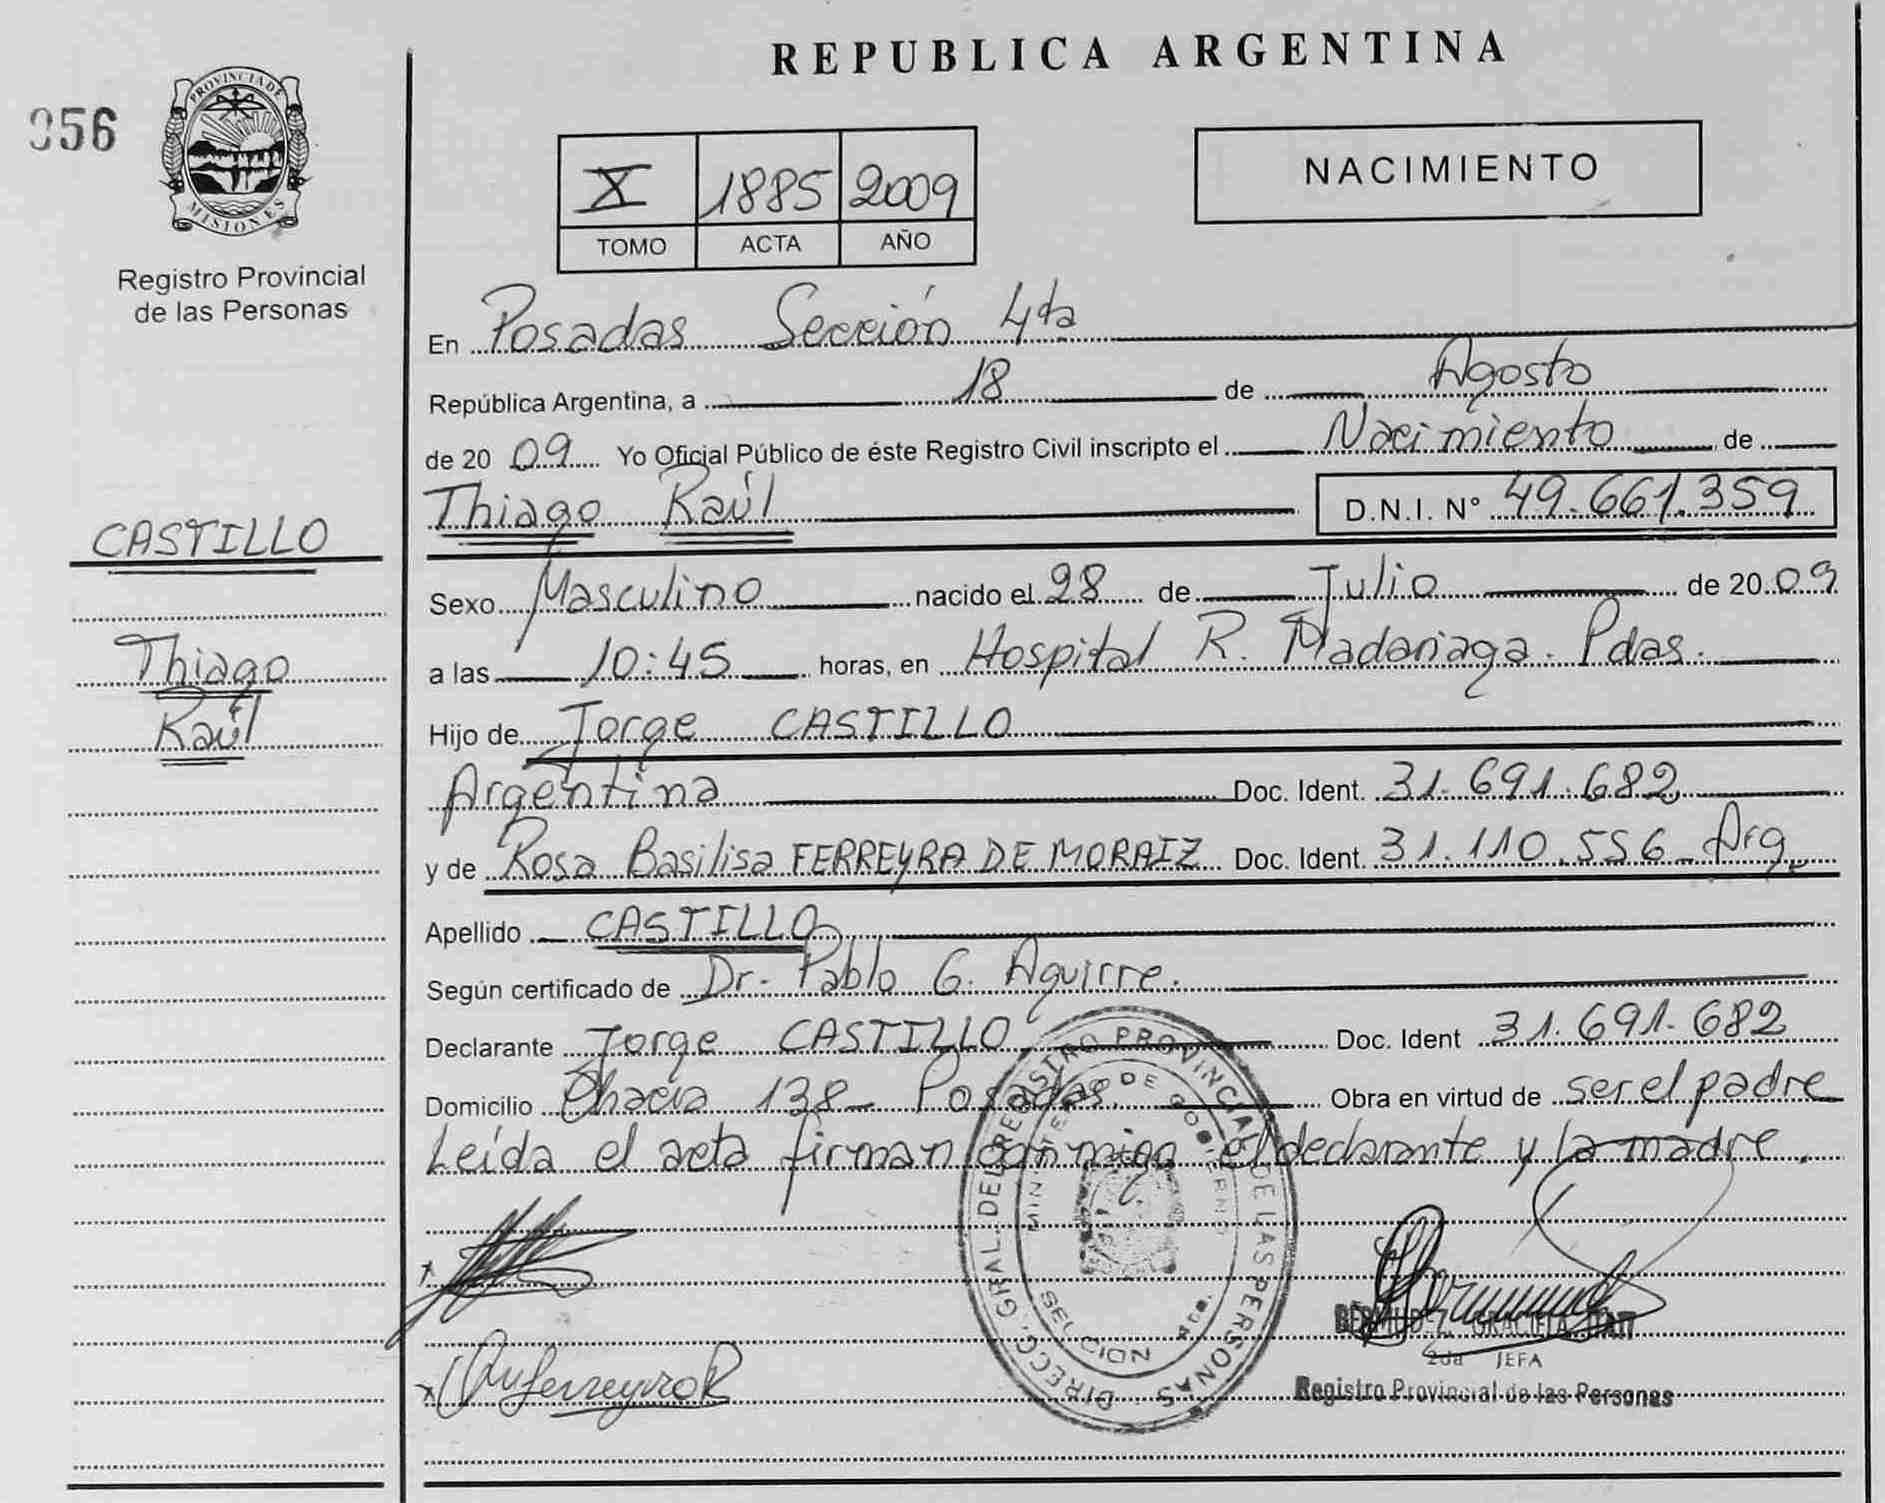 REPUBLICA ARGENTINA
056
PROVINCIA DE
MISIONES
Registro Provincial
de las Personas
X 1885 2009
TOMO ACTA AÑO
NACIMIENTO
En Posadas Sección 4ta
República Argentina, a 18 de Agosto
de 2009 Yo Oficial Público de éste Registro Civil inscripto el Nacimiento de
Thiago Raúl D.N.I. N° 49.661.359
CASTILLO
Thiago
Raúl
Sexo Masculino nacido el 28 de Julio de 2009
a las 10:45 horas, en Hospital R. Madariaga. Pdas.
Hijo de Jorge CASTILLO
Argentina Doc. Ident. 31.691.682
y de Rosa Basilisa FERREYRA DE MORAIZ Doc. Ident. 31.110.556 Arg.
Apellido CASTILLO
Según certificado de Dr. Pablo G. Aguirre.
Declarante Jorge CASTILLO Doc. Ident 31.691.682
Domicilio 138 Posadas. Obra en virtud de ser el padre
Leída el acta firman conmigo el declarante y la madre.
DIRECC. GRAL. DEL REGISTRO PROVINCIAL DE LAS PERSONAS
MINISTERIO DE GOBIERNO
BERMUDEZ, GRACIELA ITATI
2da JEFA
Registro Provincial de las Personas